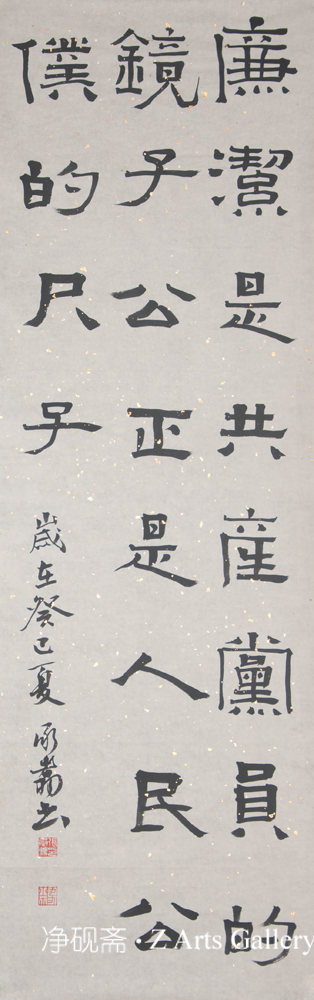 廉潔是共産黨員的
鏡子公正是人民公
僕的尺子
歲在癸巳夏 承嵩書
净砚斋·Z Arts Gallery